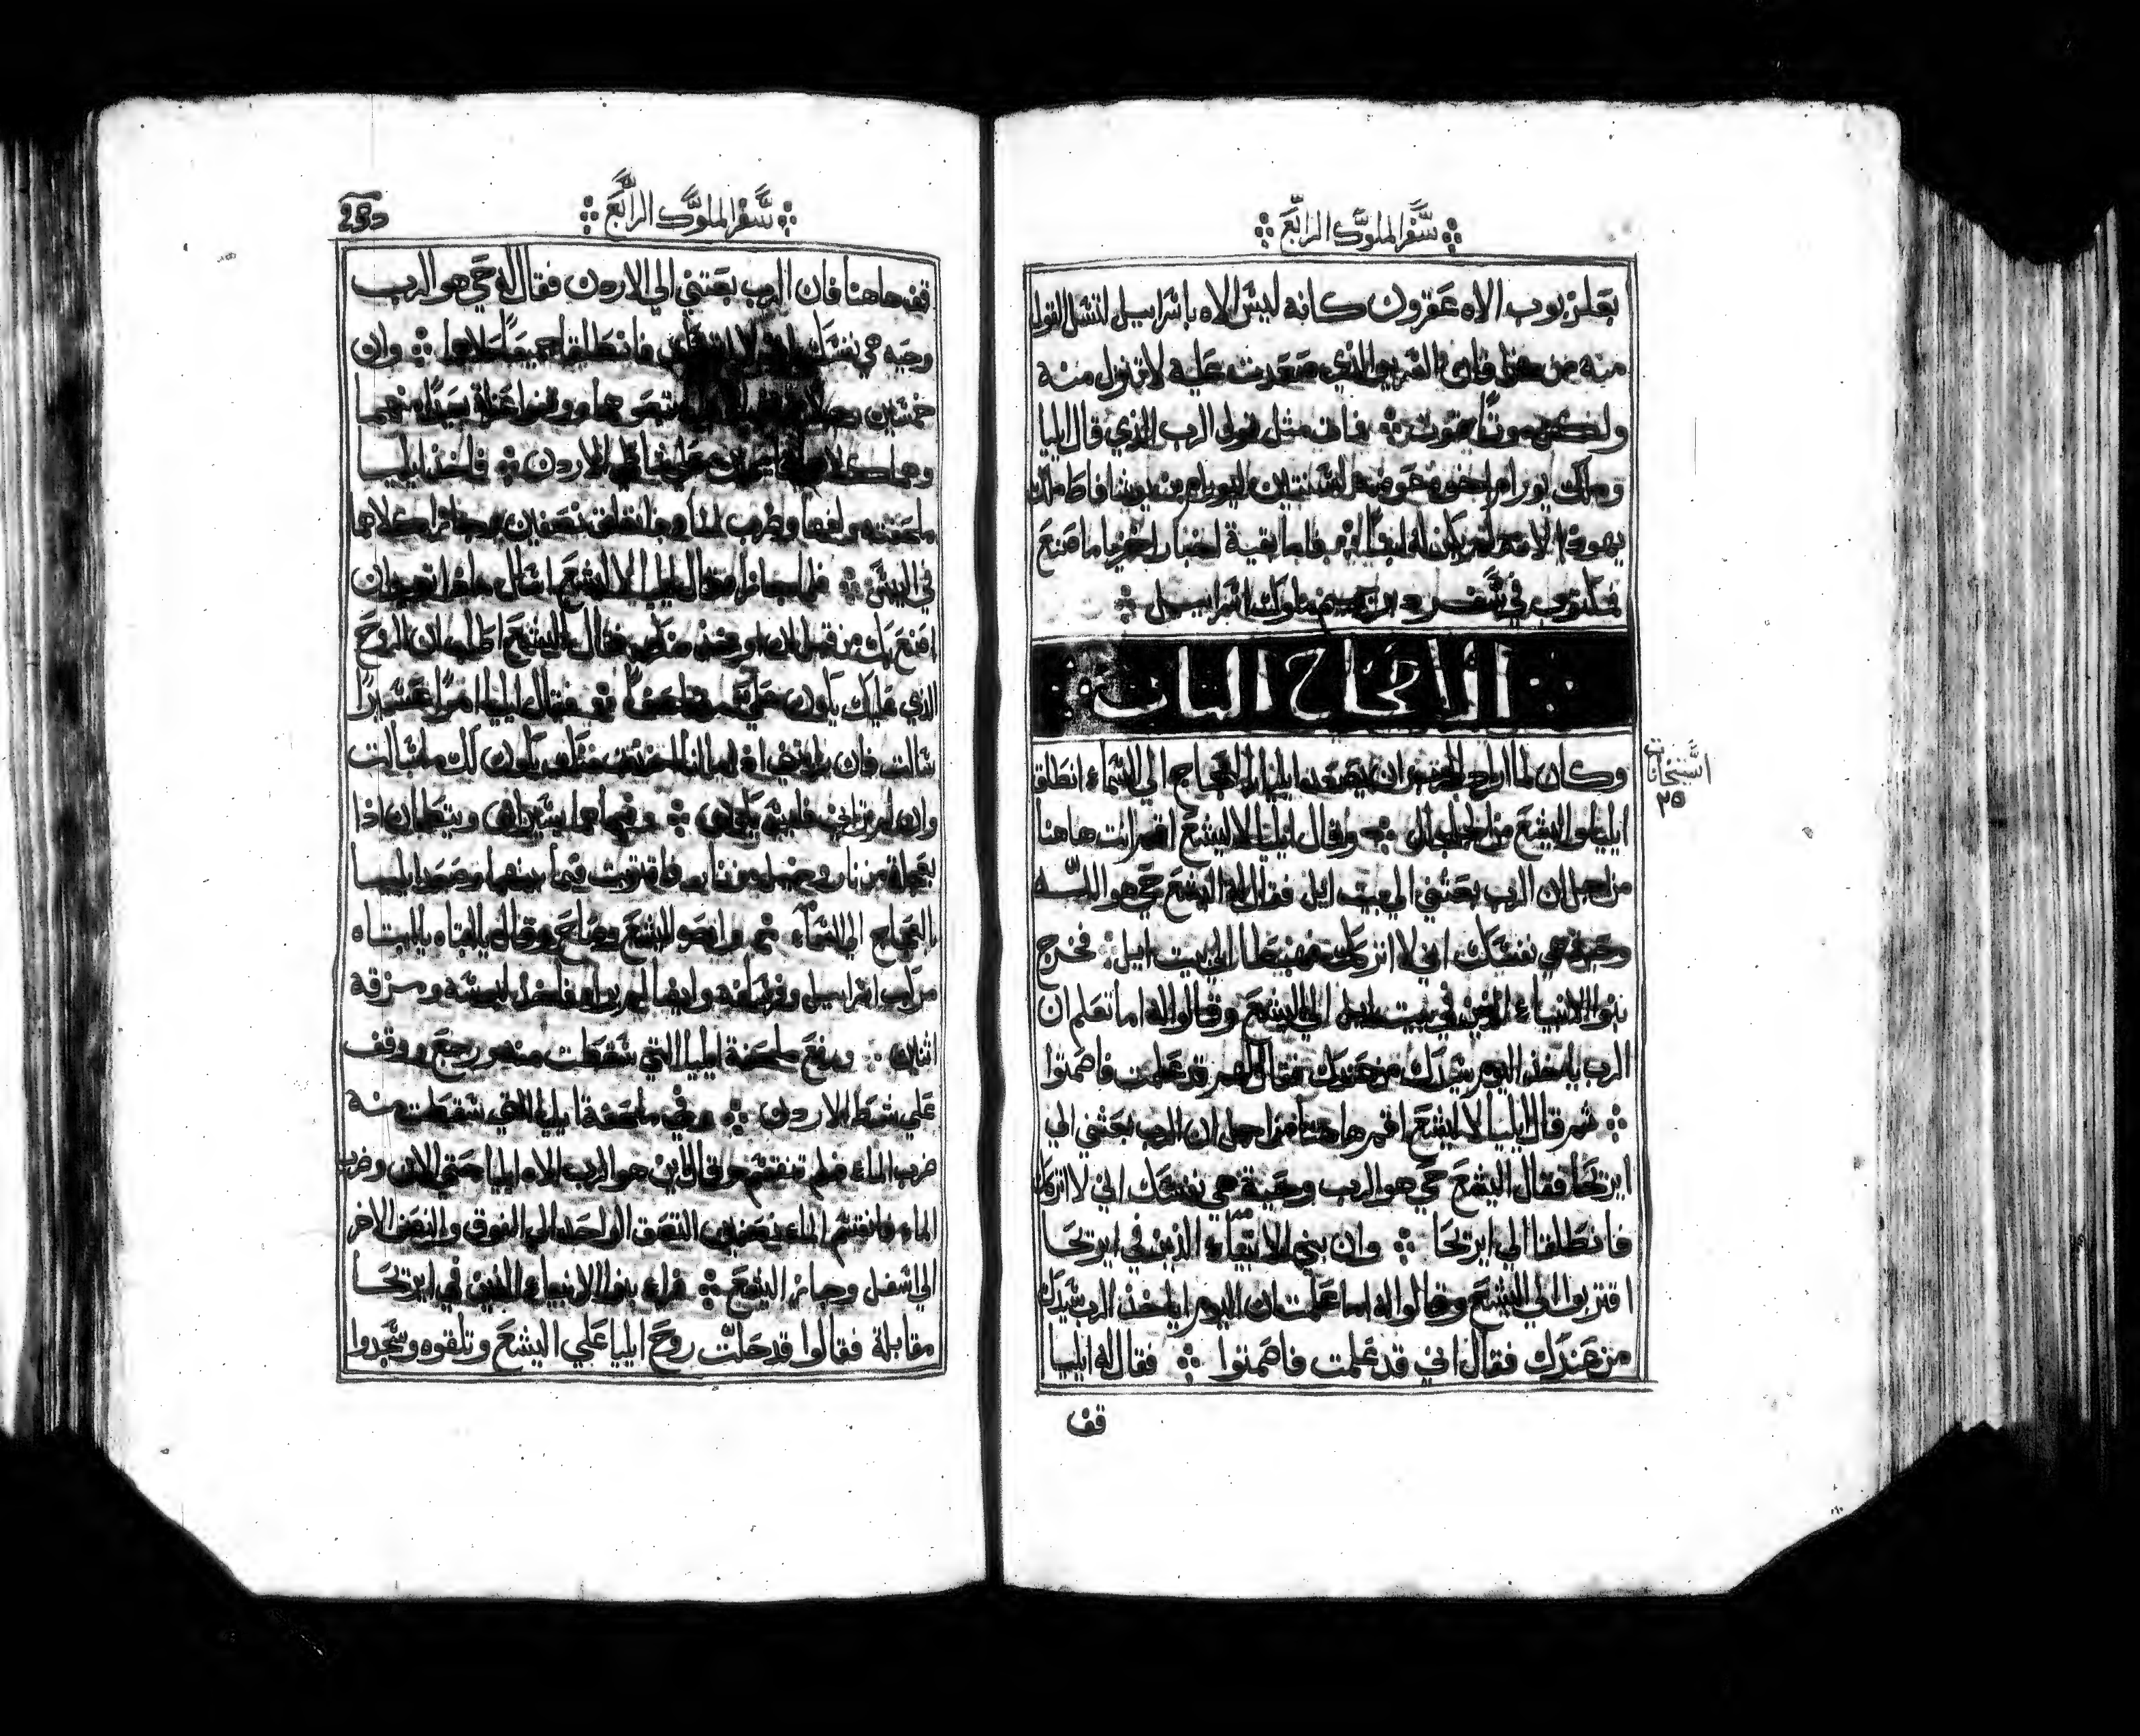 سفر الملوك الرابع
بعلزبوب الاه عقرون كانه ليس الاه باسراييل لتسل القول
منه من هذا فان السرير الذي صعدت عليه لا تنزل منه
ولكن موتا تموت فمات مثل قول الرب الذي قال ايليا
وملك يورام اخوه عوضه
يهودا لانه لم يكن له ابن فاما بقية اخبار اخزيا ما صنع
مكتوب في سفر ملوك اسراييل
الاصحاح الثاني
وكان لما اراد الرب ان يصعد ايليا بالعجاج الي السماء انطلق
ايليا واليشع من الجلجال وقال ايليا لاليشع اقم انت هاهنا
من اجل ان الرب بعثني الي بيت ايل فقال له اليشع حي هو الله
وحية هي نفسك اني لا اتركك فهبطا الي بيت ايل فخرج
بنوا الانبياء الذين في بيت ايل الي اليشع وقالوا له اما تعلم ان
الرب ياخذ اليوم سيدك من عندك فقال لهم قد علمت فاصمتوا
ثم قال ايليا لاليشع اقم هاهنا من اجل ان الرب بعثني الي
ايريحا فقال اليشع حي هو الرب وحية هي نفسك اني لا اتركك
فانطلقا الي ايريحا وان بني الانبياء الذين في ايريحا
اقتربوا الي اليشع وقالوا له اما علمت ان اليوم ياخذ الرب سيدك
من عندك فقال اني قد علمت فاصمتوا فقال له ايليا
قف
استنخانات
٢٥
سفر الملوك الرابع
قف هاهنا فان الرب بعثني الي الاردن فقال له حي هو الرب
وحيه هي نفسك فانطلقا جميعا كلاهما وان
خمسين رجلا
وهما كلاهما قايمان علي شاطي الاردن فاخذ ايليا
ملحفته ولفها وضرب الماء فانفلق نصفين وجازا كلاهما
في اليبس فلما جازا قال ايليا لاليشع اسال ماذا تريد ان
اصنع بك من قبل ان اوخذ منك فقال اليشع اطلب ان الروح
الذي عليك يكون علي مضاعفا فقال ايليا امرا عسيرا
سالت فان رايتني اذا انا اخذت منك يكون لك ما سالت
وان لم ترني فليس يكون وفيما هما يسيران وينطقان اذا
بعجلة من نار وخيل من نار فاقتربت فيما بينهما وصعد ايليا
بالعجاج الي السماء وابصر اليشع وصاح وقال يا ابتاه يا ابتاه
مركب اسراييل وفرسانه وايضا لم يراه فاخذ لبسه ومزقه
اثنان ورفع ملحفة ايليا التي سقطت منه ورجع ووقف
علي شط الاردن وفي ملحفة ايليا التي سقطت منه
ضرب الماء فلم تنقسم وقال اين هو الرب الاه ايليا حتي الان وضرب
الماء فانقسم الماء نصفين النصف الواحد الي الفوق والنصف الاخر
الي اسفل وجاز اليشع فراه بنوا الانبياء الذين في ايريحا
مقابلة فقالوا قد حلت روح ايليا علي اليشع وتلقوه وسجدوا